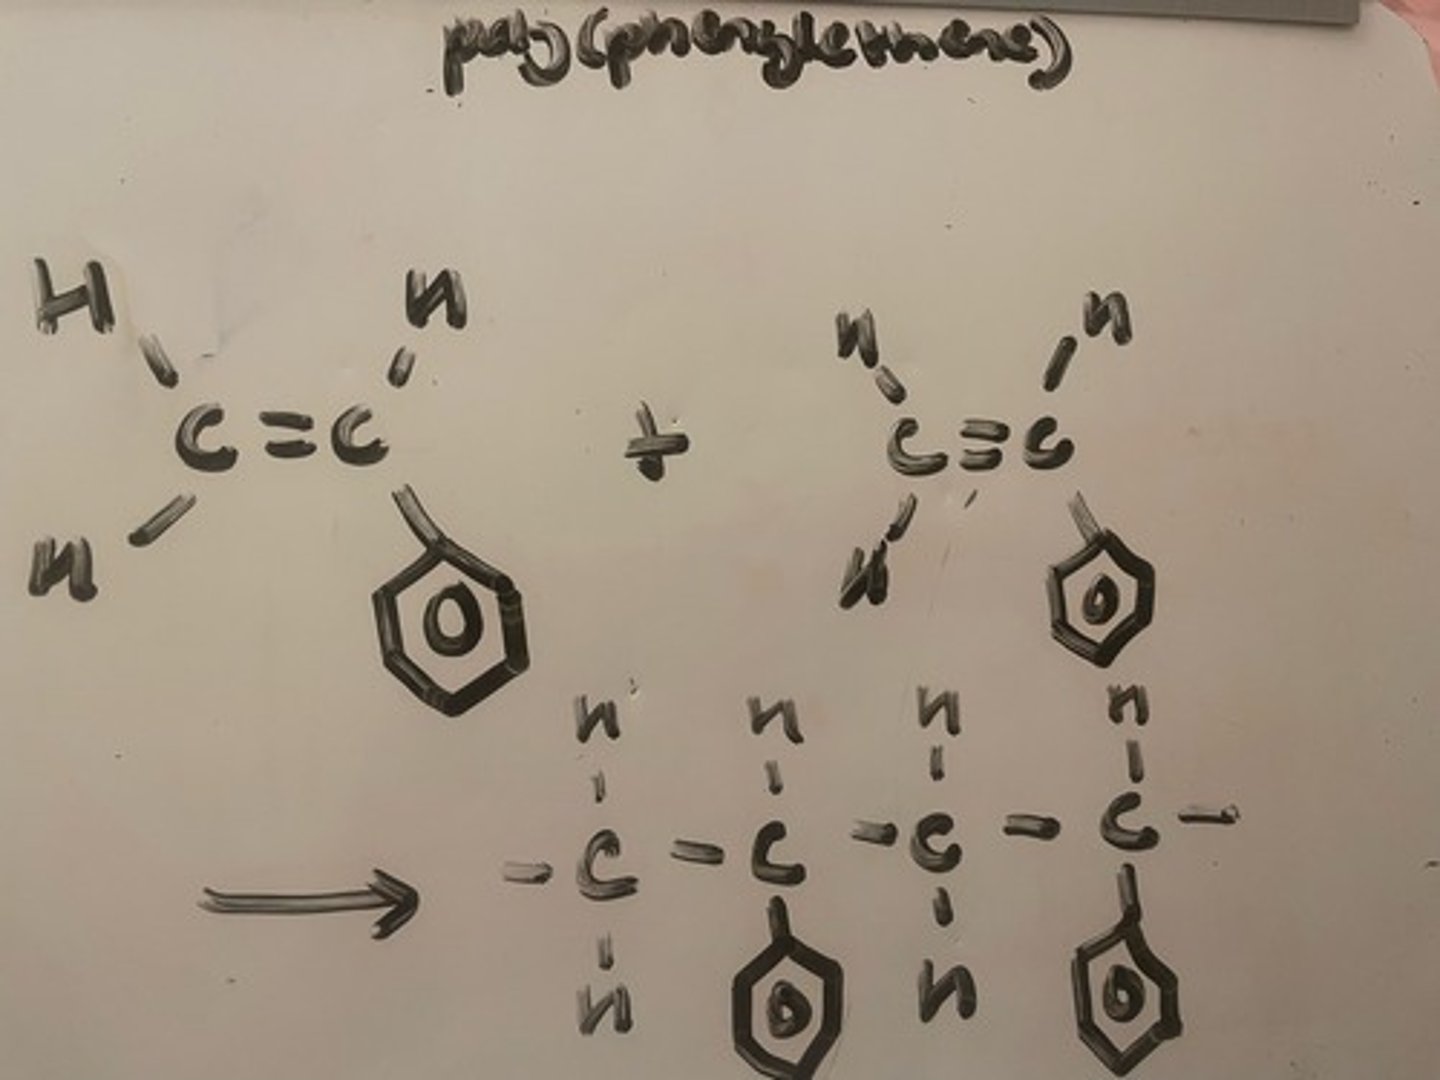 poly(phenylethene)
H H H H
C = C + C = C
H H
H H H H
- C - C - C - C -
H H